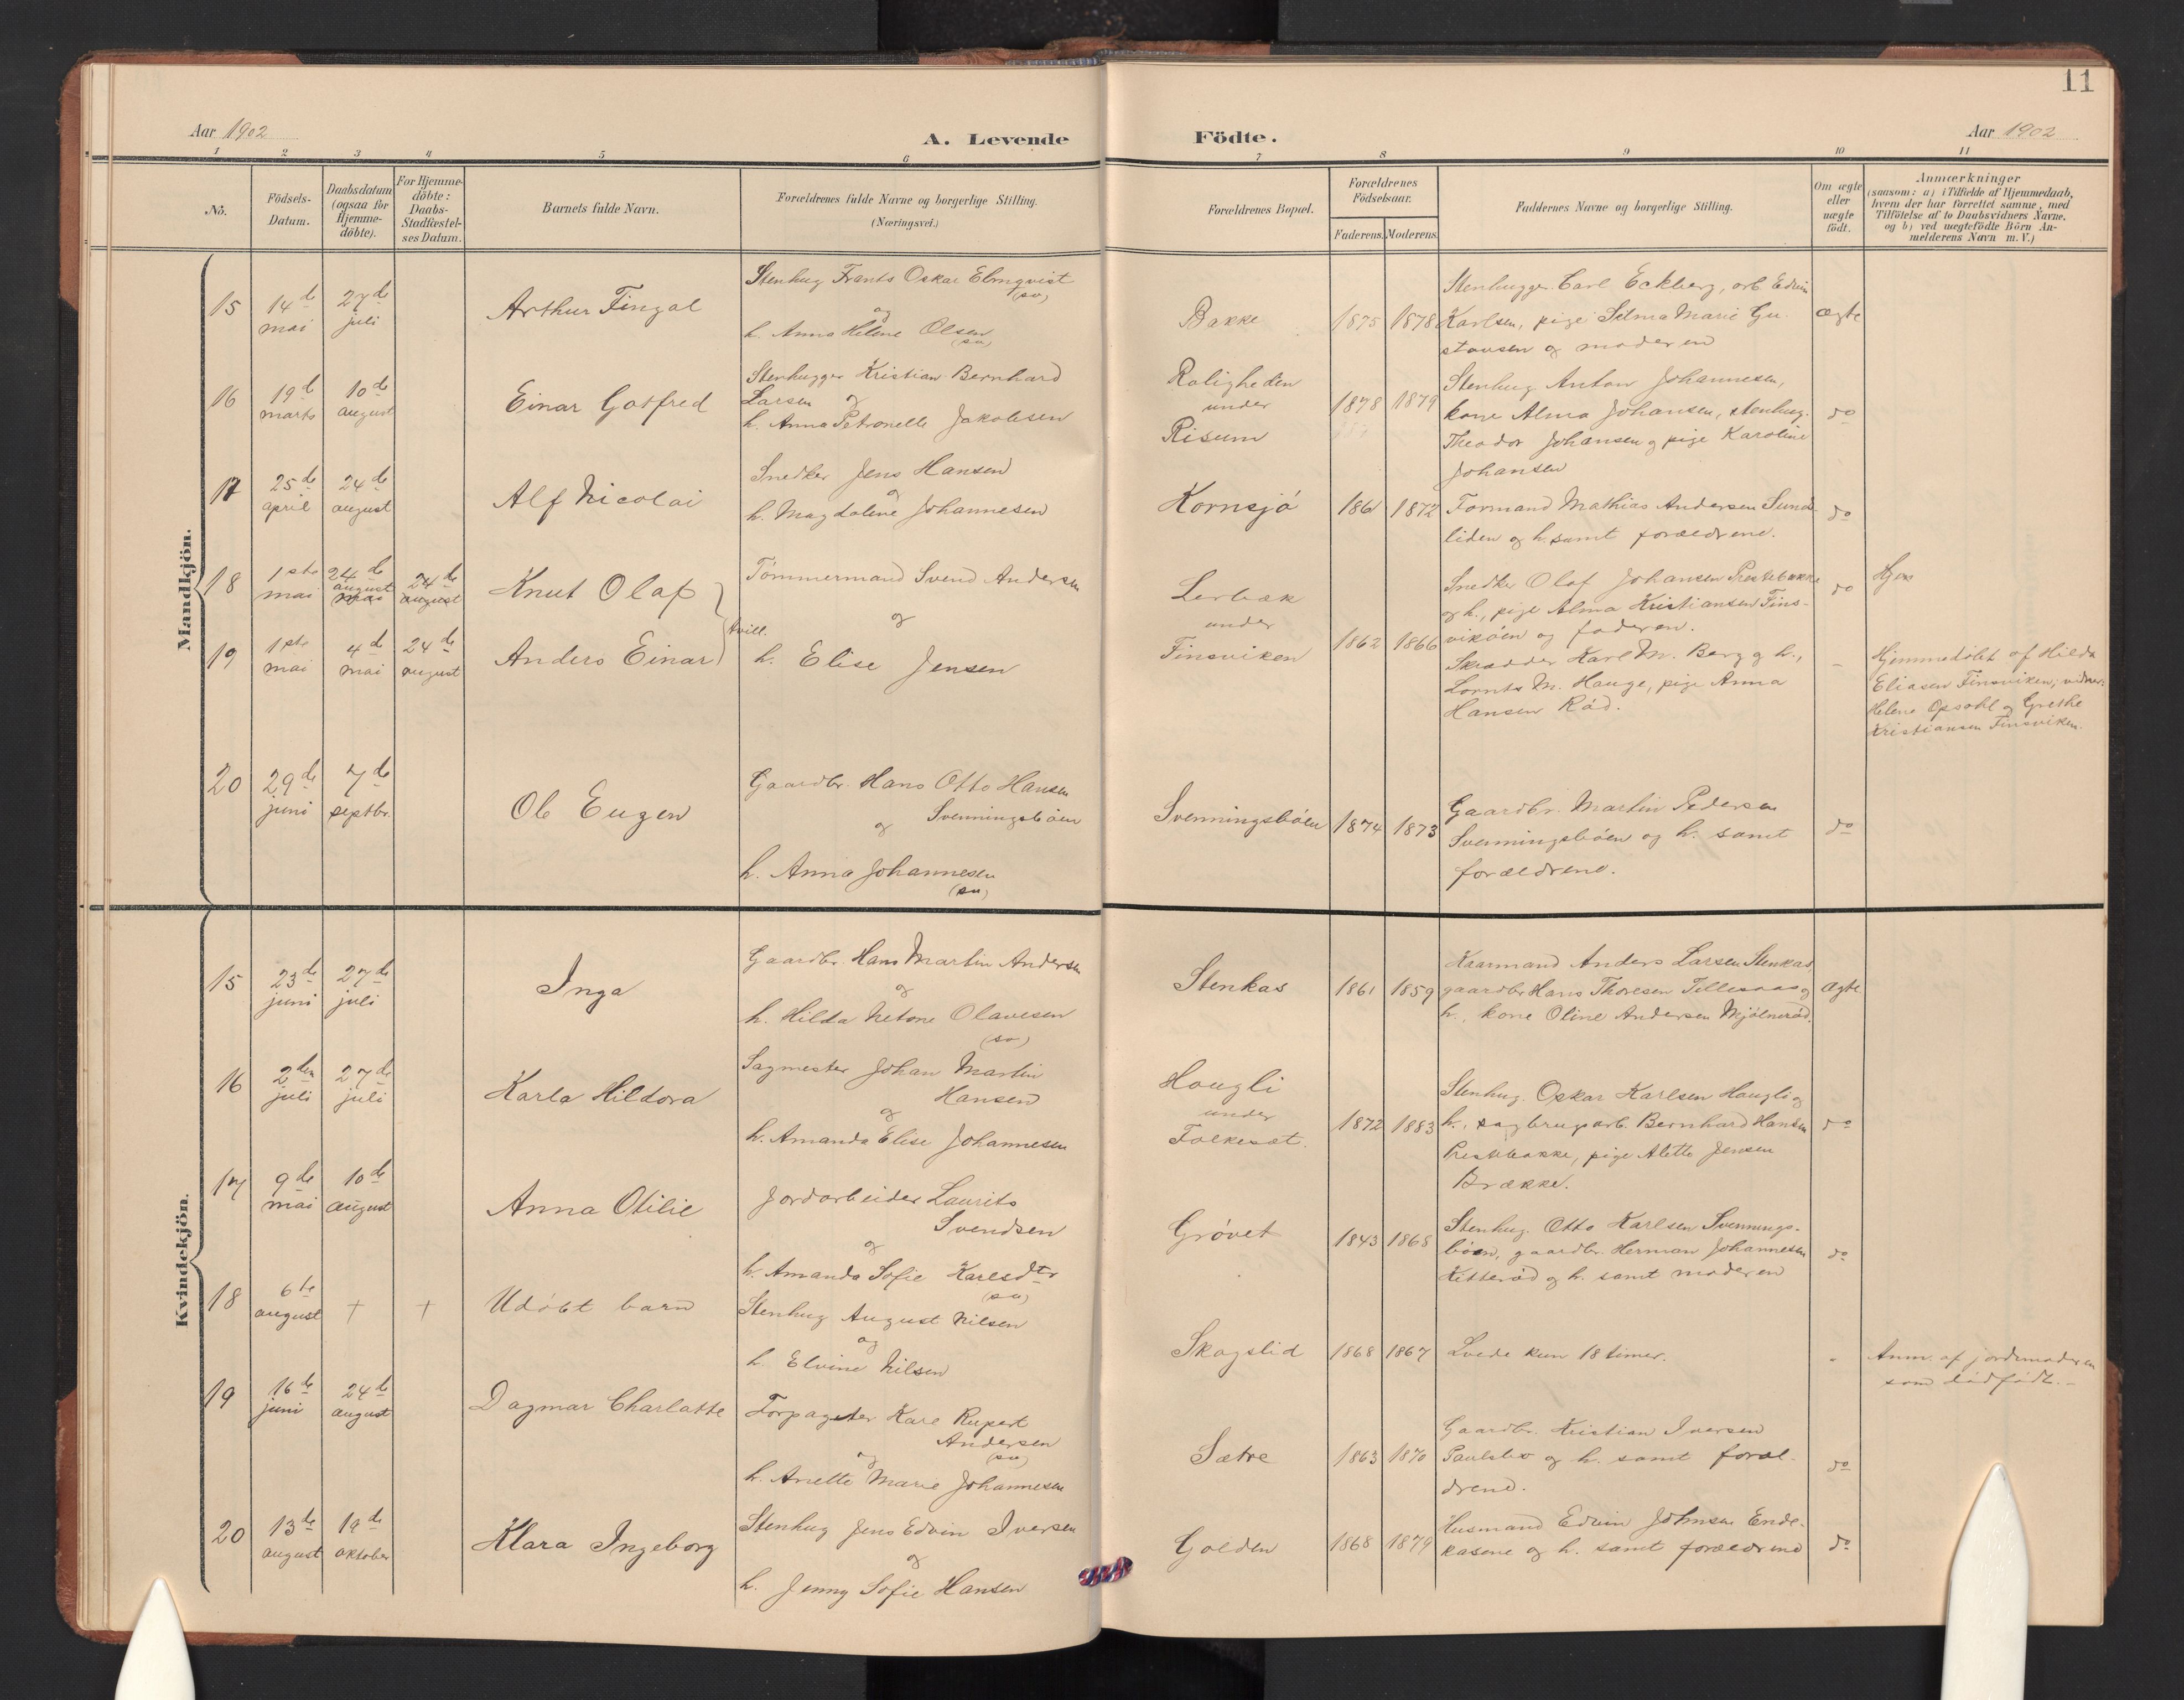 11
Aar 1902
A. Levende
Födte.
Aar 1902
1 2 3 4 5 6 7 8 9 10 11
Nö.
Födsels-
Datum.
Daabsdatum
(ogsaa for
Hjemme-
döbte).
For Hjemme-
döbte:
Daabs-
Stadfæstel-
ses Datum.
Barnets fulde Navn.
Forældrenes fulde Navne og borgerlige Stilling.
(Næringsvei.)
Forældrenes Bopæl.
Forældrenes
Födselsaar.
Faderens. Moderens.
Faddernes Navne og borgerlige Stilling.
Om ægte
eller
uægte
födt.
Anmærkninger
(saasom: a) i Tilfælde af Hjemmedaab,
hvem der har forrettet samme, med
Tilföielse af to Daabsvidners Navne.
og b) ved uægtefödte Börn An-
melderens Navn m. V.)
Mandkjön.
15
14de
mai
27de
juli
Arthur Fingal
Stenhug Frants Oskar Elmqvist
(sv)
og
h. Anna Helene Olsen
(sv)
Bakke
1875 1878
Stenhugger Carl Eckberg, arb. Edvin
Karlsen, pige Selma Marie Gu-
stavsen og moderen
ægte
16
19de
marts
10de
august
Einar Gotfred
Stenhugger Kristian Bernhard
Larsen og
h. Anna Petronelle Jakobsen
Roligheden
under
Risum
1878 1879
Stenhug. Anton Johannesen,
kone Alma Johansen, stenhug.
Theodor Johansen og pige Karoline
Johansen
do
17
25de
april
24de
august
Alf Nicolai
Snedker Jens Hansen
og
h. Magdalene Johannesen
Kornsjö
1861 1872
Formand Mathias Andersen Sund-
liden og h. samt forældrene.
do
18
1ste
mai
24de
august
mai
24de
august
Knut Olaf
Tömmermand Svend Andersen
og
Lerbæk
under
Finsviken
1862 1866
Snedker Olaf Johansen Prestebakke
og h., pige Alma Kristiansen Fins-
viköen og faderen.
do
Hjem
19
1ste
mai
4de
mai
24de
august
Anders Einar
tvill.
h. Elise Jensen
Skrædder Karl M. Berg og h.,
Lornts M. Hauge, pige Anna
Hansen Röd.
Hjemmedöbt af Hilda
Eliasen Finsviken, vidner:
Helene Opsahl og Grethe
Kristiansen Finsviken.
20
29de
juni
7de
septbr.
Ole Eugen
Gaardbr. Hans Otto Hansen
Svenningsböen
og
h. Anna Johannesen
(sv)
Svenningsböen
1874 1873
Gaardbr. Martin Pedersen
Svenningsböen og h. samt
forældrene.
do
Kvindekjön.
15
23de
juni
27de
juli
Inga
Gaardbr. Hans Martin Andersen
og
h. Hilda Netone Olavesen
(sv)
Stenkas
1861 1859
Kaarmand Anders Larsen Stenkas,
gaardbr. Hans Thoresen Tillesaas og
h., kone Oline Andersen Mjölneröd.
Ægte
16
2den
juli
27de
juli
Karla Hildora
Sagmester Johan Martin
Hansen
og
h. Amanda Elise Johannesen
Hougli
under
Folkesøt.
1872 1883
Stenhug. Oskar Karlsen Haugli og
h., sagbrugarb. Bernhard Hansen
Prestebakke, pige Alette Jensen
Brække.
do
17
9de
mai
10de
august
Anna Otilie
Jordarbeider Laurits
Svendsen
og
h. Amanda Sofie Karlsdtr
(sv)
Grövet
1843 1868
Stenhug. Otto Karlsen Svennings-
böen, gaardbr. Herman Johannesen
Kitteröd og h. samt moderen
do
18
6te
august
†
†
Udöbt barn
Stenhug August Nilsen
og
h. Elvine Nilsen
Skogslid
1868 1867
Levede kun 18 timer.
Anm. af jordmoderen
som dödfödt.
19
16de
juni
24de
august
Dagmar Charlotte
Forpagter Karl Rupert
Andersen
(sv)
og
h. Anette Marie Johannesen
Sætre
1863 1870
Gaardbr. Kristian Iversen
Paulsbo og h. samt foræl-
drene.
do
20
13de
august
19de
oktober
Klara Ingeborg
Stenhug Jens Edvin Iversen
og
h. Jenny Sofie Hansen
Golden
1868 1879
Husmand Edvin Johnsen Ende-
kasene og h. samt forældrene
do